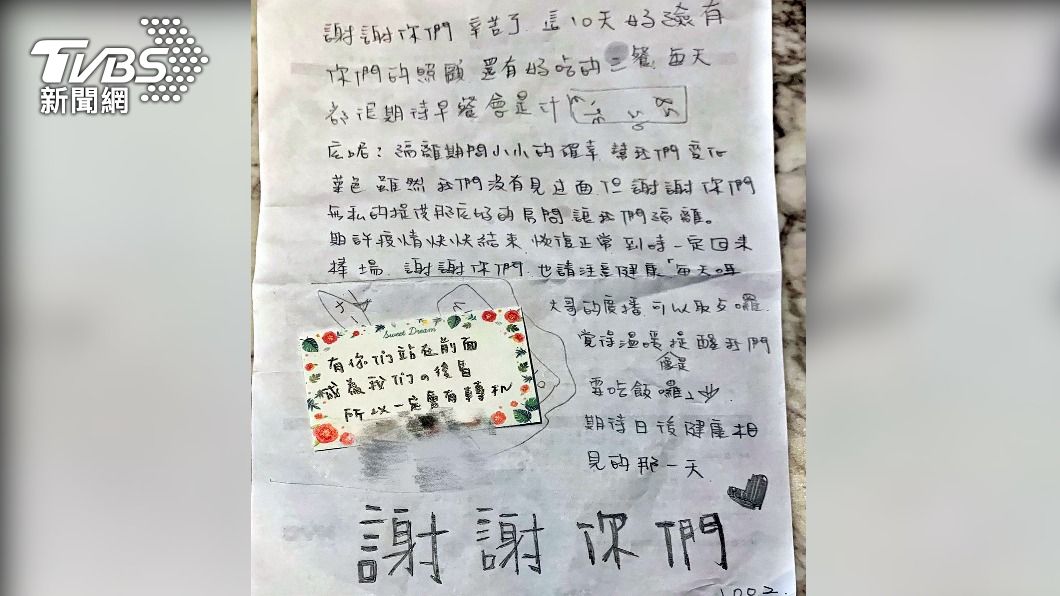 TVBS
新聞網
謝謝你們 辛苦了 這10天好險有
你們的照顧 還有好吃的三餐 每天
都很期待早餐會是什
底呢? 隔離期間小小的確幸 幫我們變化
菜色 雖然我們沒有見過面 但謝謝你們
無私的提供那麼好的房間讓我們隔離。
期許疫情快快結束 恢復正常 到時一定回來
捧場 謝謝你們 也請注意健康「每天嗎
大哥的廣播 可以取夕囉
覺得溫暖提醒我們
像是
要吃飯囉」
期待日後健康相
見的那一天
Sweet Dream
有你們站在前面
成為我们の後盾
所以一定會有轉机
謝謝你們
1002.